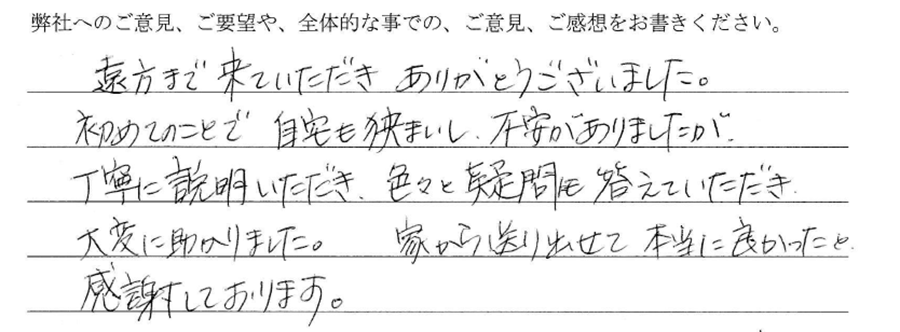 弊社へのご意見、ご要望や、全体的な事での、ご意見、ご感想をお書きください。
遠方まで来ていただき ありがとうございました。
初めてのことで 自宅も狭まいし、不安がありましたが、
丁寧に説明いただき、色々と疑問も答えていただき、
大変に助かりました。 家から送り出せて 本当に良かったと
感謝しております。